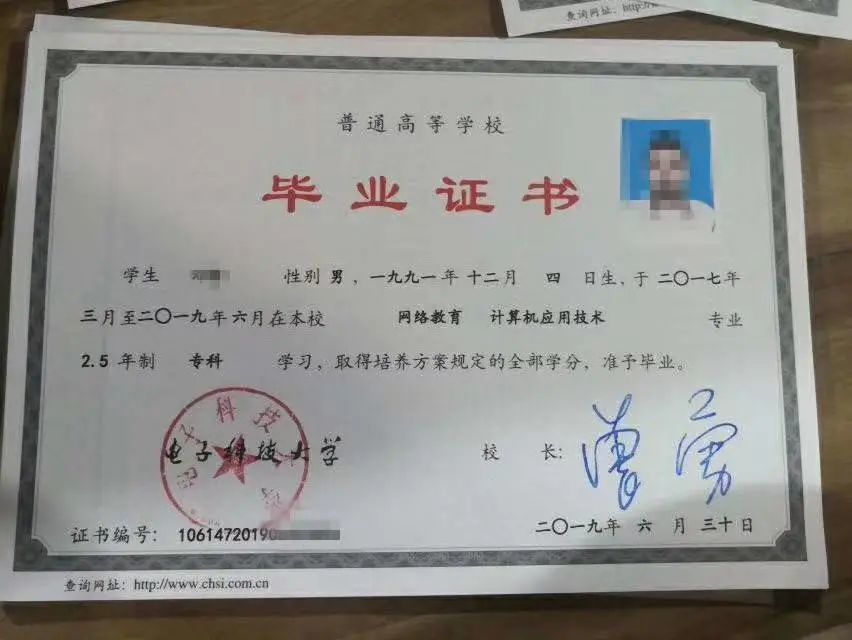 查询网址: http://w
普通高等学校
毕业证书
学生 性别 男，一九九一年 十二月 四 日生，于 二〇一七年
三月至二〇一九年 六月在本校 网络教育 计算机应用技术 专业
2.5 年制 专科 学习，取得培养方案规定的全部学分，准予毕业。
科技
电子科技大学
校 长: 曾勇
证书编号: 10614720190
二〇一九年 六 月 三十日
查询网址: http://www.chsi.com.cn